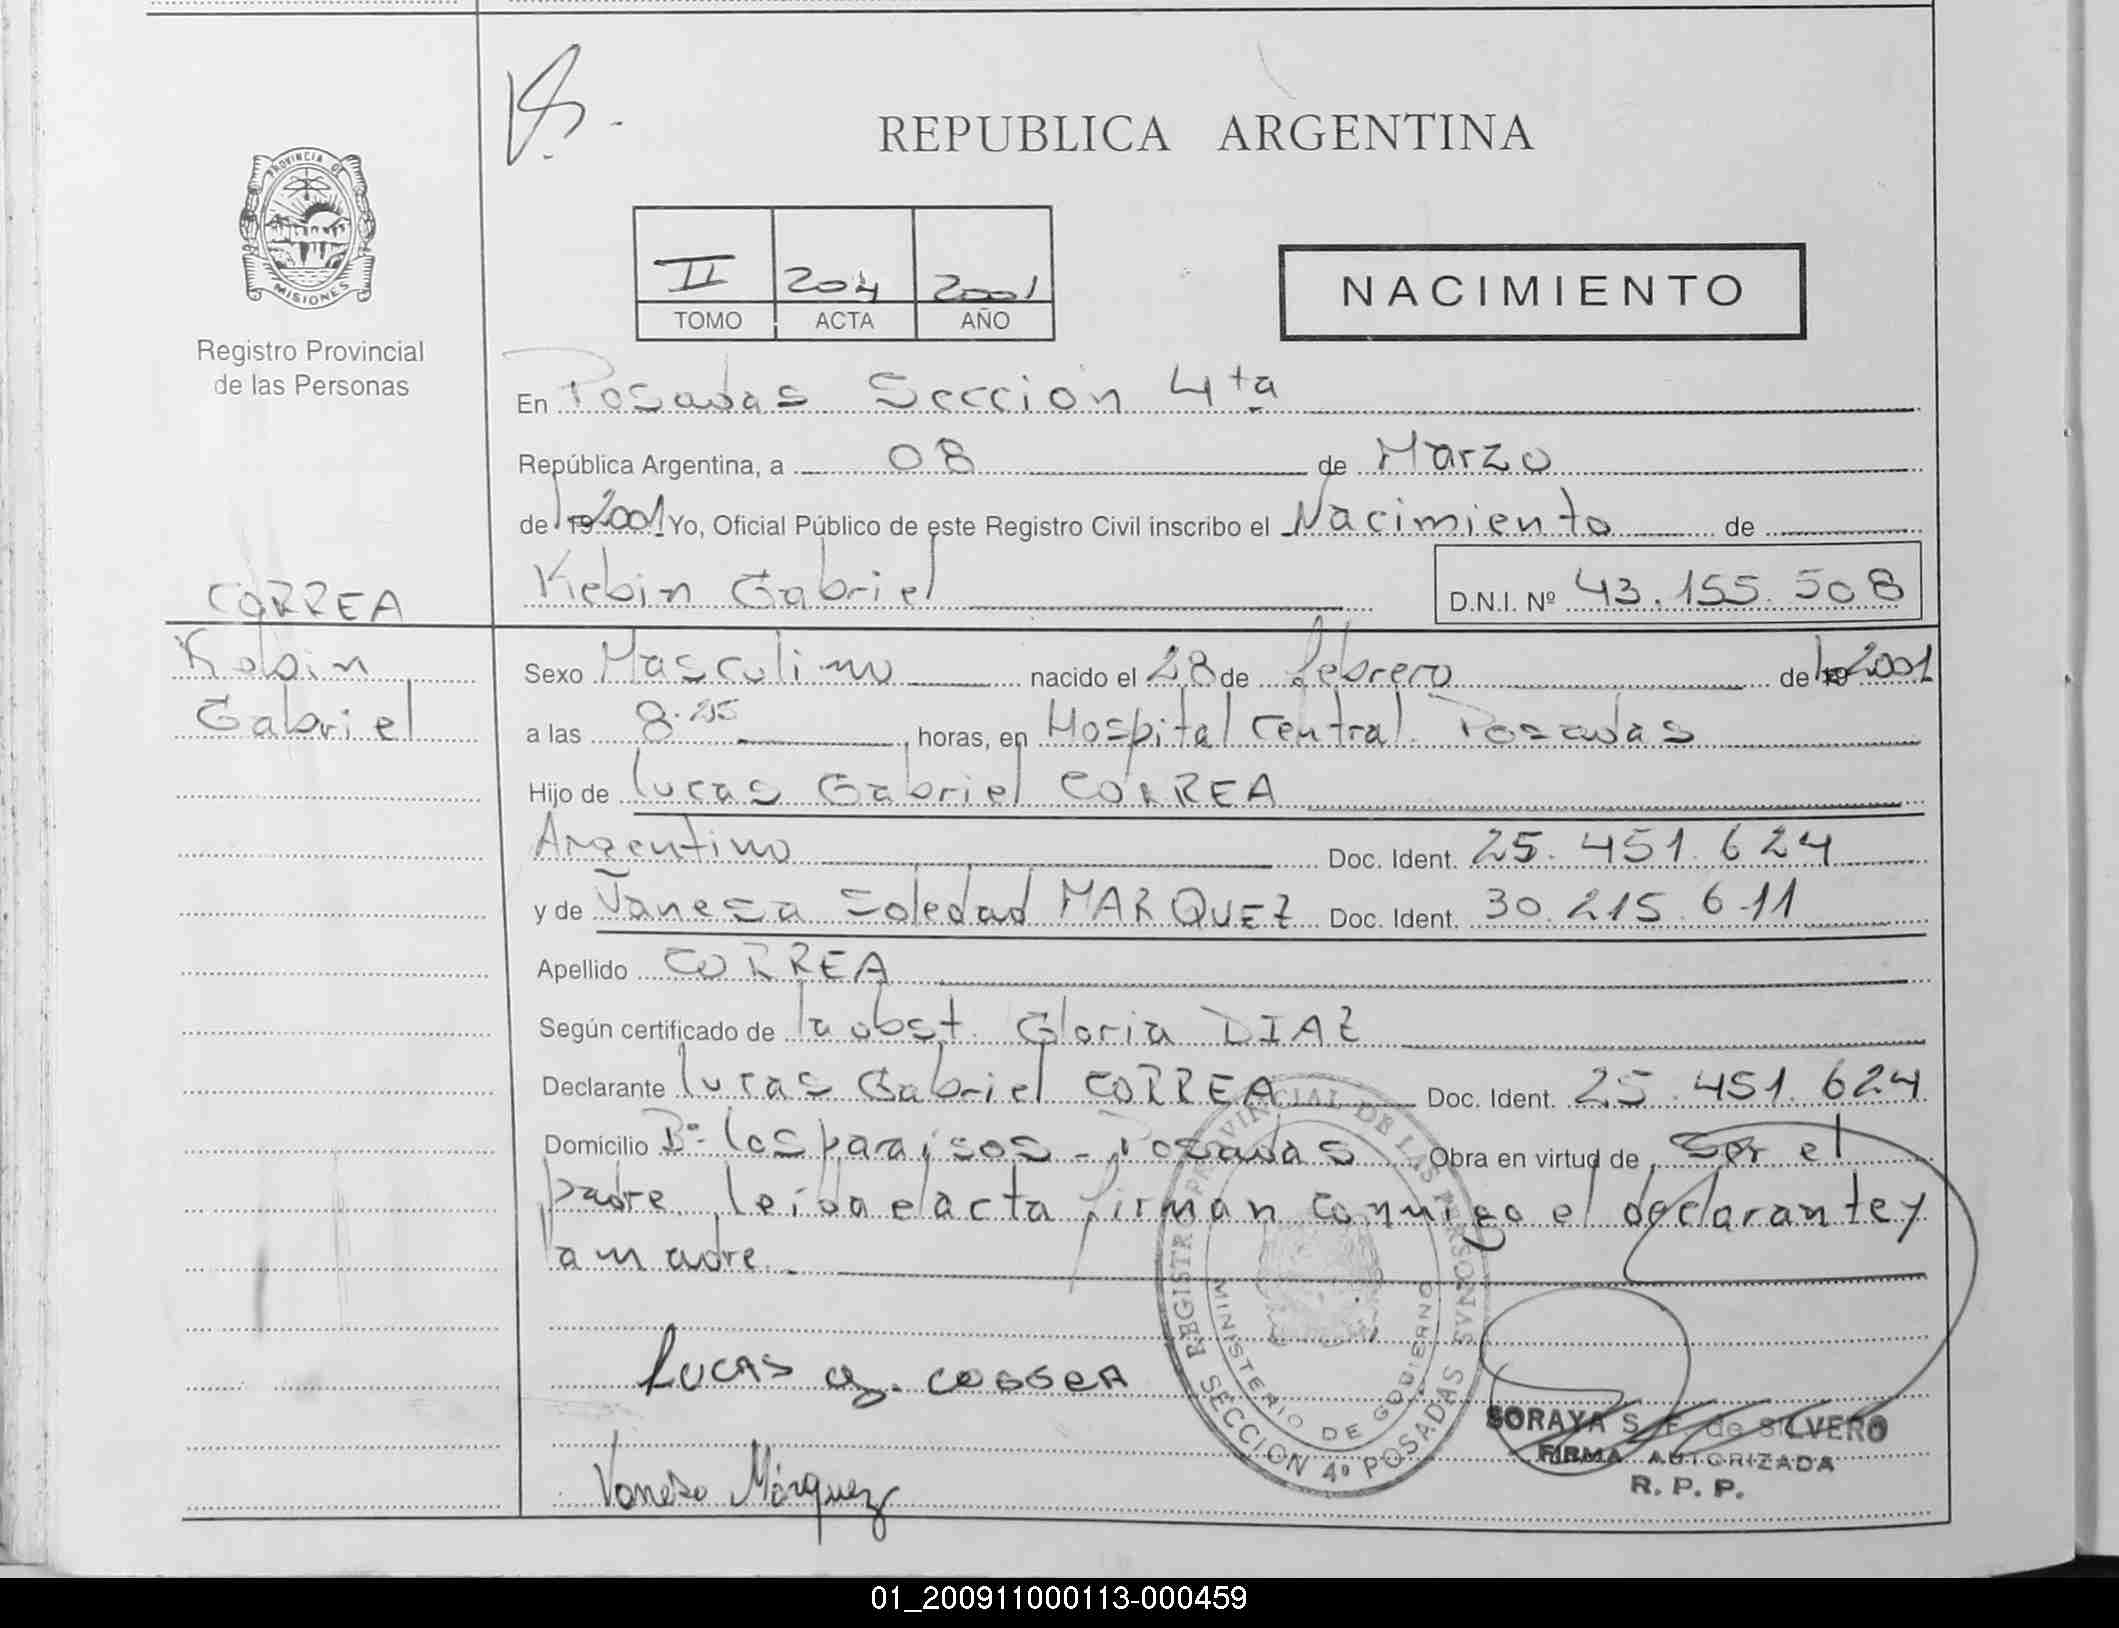 REPUBLICA ARGENTINA
PROVINCIA DE
MISIONES
Registro Provincial
de las Personas
II 204 2001
TOMO ACTA AÑO
NACIMIENTO
En Posadas Sección 4ta
República Argentina, a 08 de Marzo
de 19 2001 Yo, Oficial Público de este Registro Civil inscribo el Nacimiento de
Kebin Gabriel D.N.I. Nº 43.155.508
CORREA
Kebin
Gabriel
Sexo Masculino nacido el 28 de febrero de 19 2001
a las 8. horas, en Hospital Central Posadas
Hijo de Lucas Gabriel CORREA
Argentino Doc. Ident. 25.451.624
y de Vanesa Soledad MARQUEZ Doc. Ident. 30.215.611
Apellido CORREA
Según certificado de la obst. Gloria DIAZ
Declarante Lucas Gabriel CORREA Doc. Ident. 25.451.624
Domicilio Bº Los paraisos - Posadas Obra en virtud de ser el
padre leida el acta firman conmigo el declarante y
la madre
REGISTRO PROVINCIAL DE LAS PERSONAS
MINISTERIO DE GOBIERNO
SECCION 4º POSADAS
LUCAS G. CORREA
Vanesa Márquez
SORAYA S. F. de SILVERO
FIRMA AUTORIZADA
R. P. P.
01_200911000113-000459